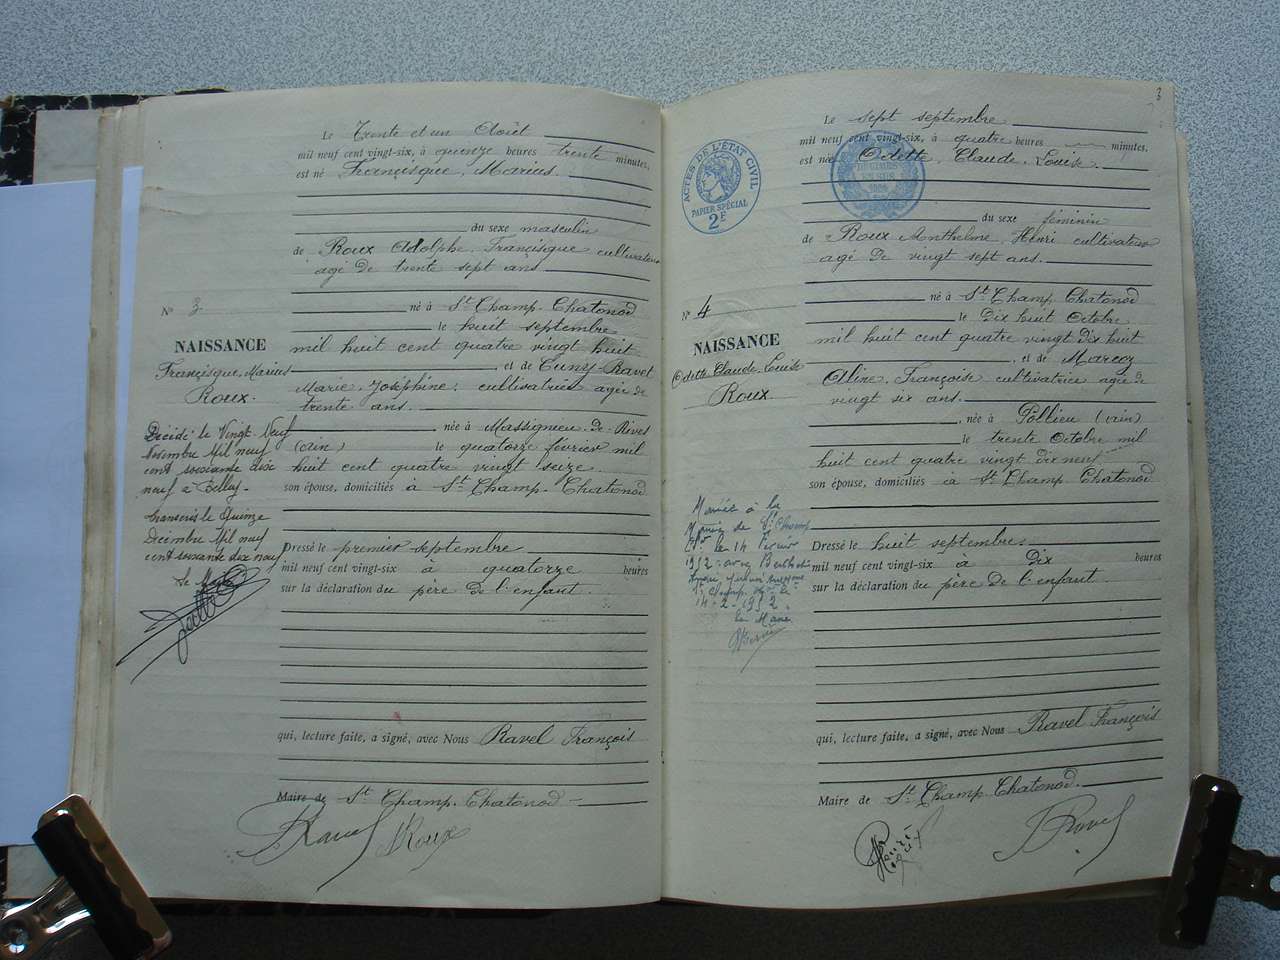 Le Trente et un Août
mil neuf cent vingt-six, à quinze heures trente minutes,
est né Françisque, Marius
du sexe masculin
de Roux Adolphe, Françisque cultivateur
agé de trente sept ans
né à St Champ-Chatonod
le huit septembre
mil huit cent quatre vingt huit
, et de Cuny-Ravet
Marie, Joséphine; cultivatrice agée de
trente ans.
née à Massignieu-de-Rives
(ain) le quatorze février mil
huit cent quatre vingt seize.
son épouse, domiciliés à St Champ-Chatonod
Dressé le premier septembre
mil neuf cent vingt-six à quatorze heures
sur la déclaration du père de l'enfant.
qui, lecture faite, a signé, avec Nous Ravel François
Maire de St Champ-Chatonod
Ravel Roux
No 3
NAISSANCE
Françisque, Marius
Roux.
Décédé le Vingt Neuf
Novembre Mil neuf
cent soixante dix
neuf à Belley.
Transcrit le Quinze
Décembre Mil neuf
cent soixante dix neuf
Le Maire
3
Le sept septembre
mil neuf cent vingt-six, à quatre heures minutes,
est née Odette, Claude, Louise
du sexe féminin
de Roux Anthelme, Henri cultivateur
agé de vingt sept ans.
né à St Champ Chatonod
le dix huit Octobre
mil huit cent quatre vingt dix huit
, et de Marcoz
Aline, Françoise cultivatrice agée de
vingt six ans.
, née à Pollieu (ain)
le trente Octobre mil
huit cent quatre vingt dix neuf
son épouse, domiciliés à St Champ Chatonod
Dressé le huit septembre.
mil neuf cent vingt-six à dix heures
sur la déclaration du père de l'enfant.
qui, lecture faite, a signé, avec Nous Ravel François
Maire de St Champ-Chatonod.
Ravel
ACTES DE L'ÉTAT CIVIL
PAPIER SPÉCIAL
2F
No 4
NAISSANCE
Odette, Claude, Louise
Roux
Mariée à la
Mairie de St Champ
le 14 Février
1952 avec
St Champ le
14-2-1952
le Maire